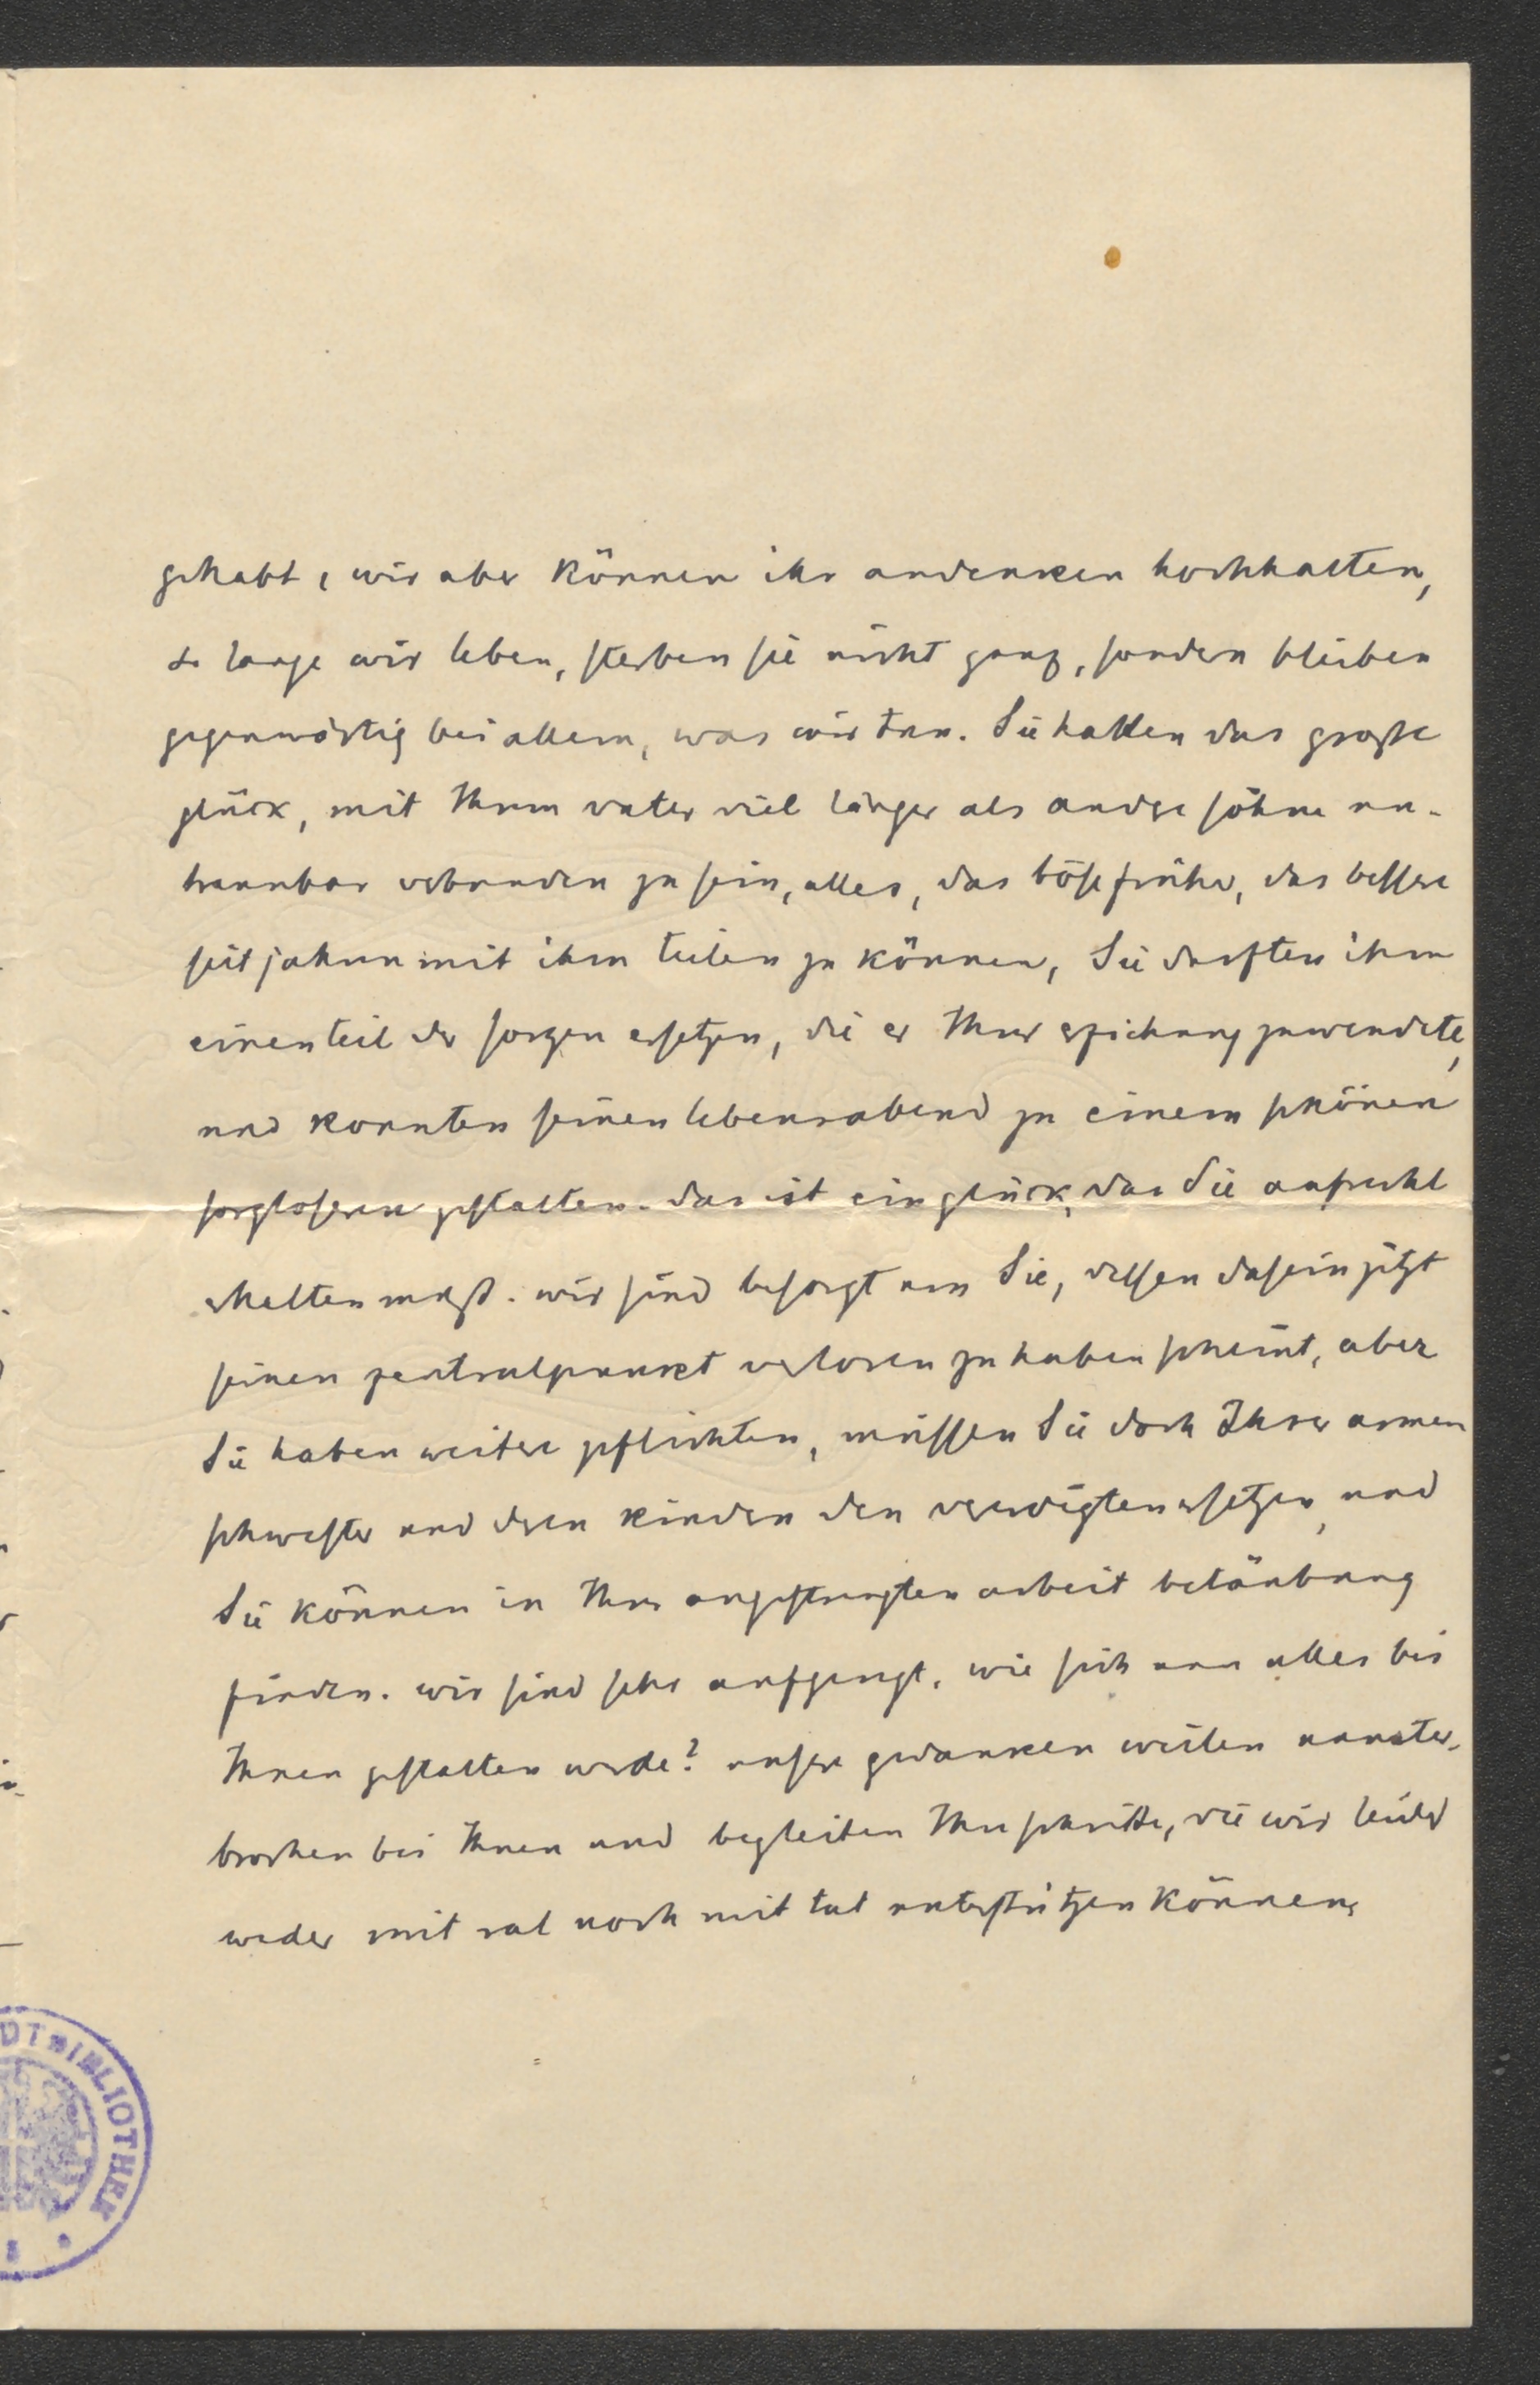 gehabt, wir aber können ihr andenken hochhalten,
so lange wir leben, sterben sie nicht ganz, sondern bleiben
gegenwärtig bei allem, was wir tun. Sie hatten das große
glück, mit Ihrem vater viel länger als andere söhne un-
trennbar verbunden zu sein, alles, das böse früher, das bessere
seit jahren mit ihm teilen zu können, Sie durften ihm
einen teil der sorgen ersetzen, die er Ihrer erziehung zuwendete,
und konnten seinen lebensabend zu einem schönen
sorgloseren gestalten. das ist ein glück, das Sie aufrecht
erhalten muß. wir sind besorgt um Sie, dessen dasein jetzt
seinen zentralpunkt verloren zu haben scheint, aber
Sie haben weitere pflichten, müssen Sie doch Ihrer armen
schwester und deren kindern den verewigten ersetzen, und
Sie können in Ihrer angestrengten arbeit betäubung
finden. wir sind sehr aufgeregt, wie sich nun alles bei
Ihnen gestalten werde? unsere gedanken weilen ununter-
brochen bei Ihnen und begleiten Ihre schritte, die wir leider
weder mit rat noch mit tat unterstützen können,
DTBIBLIOTHEK